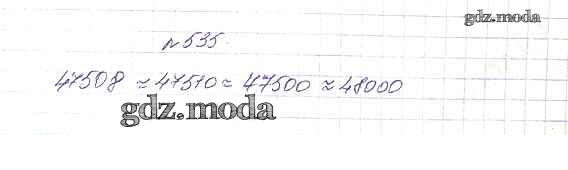 gdz.moda
№535.
47508 ≈ 47510 ≈ 47500 ≈ 48000
gdz.moda